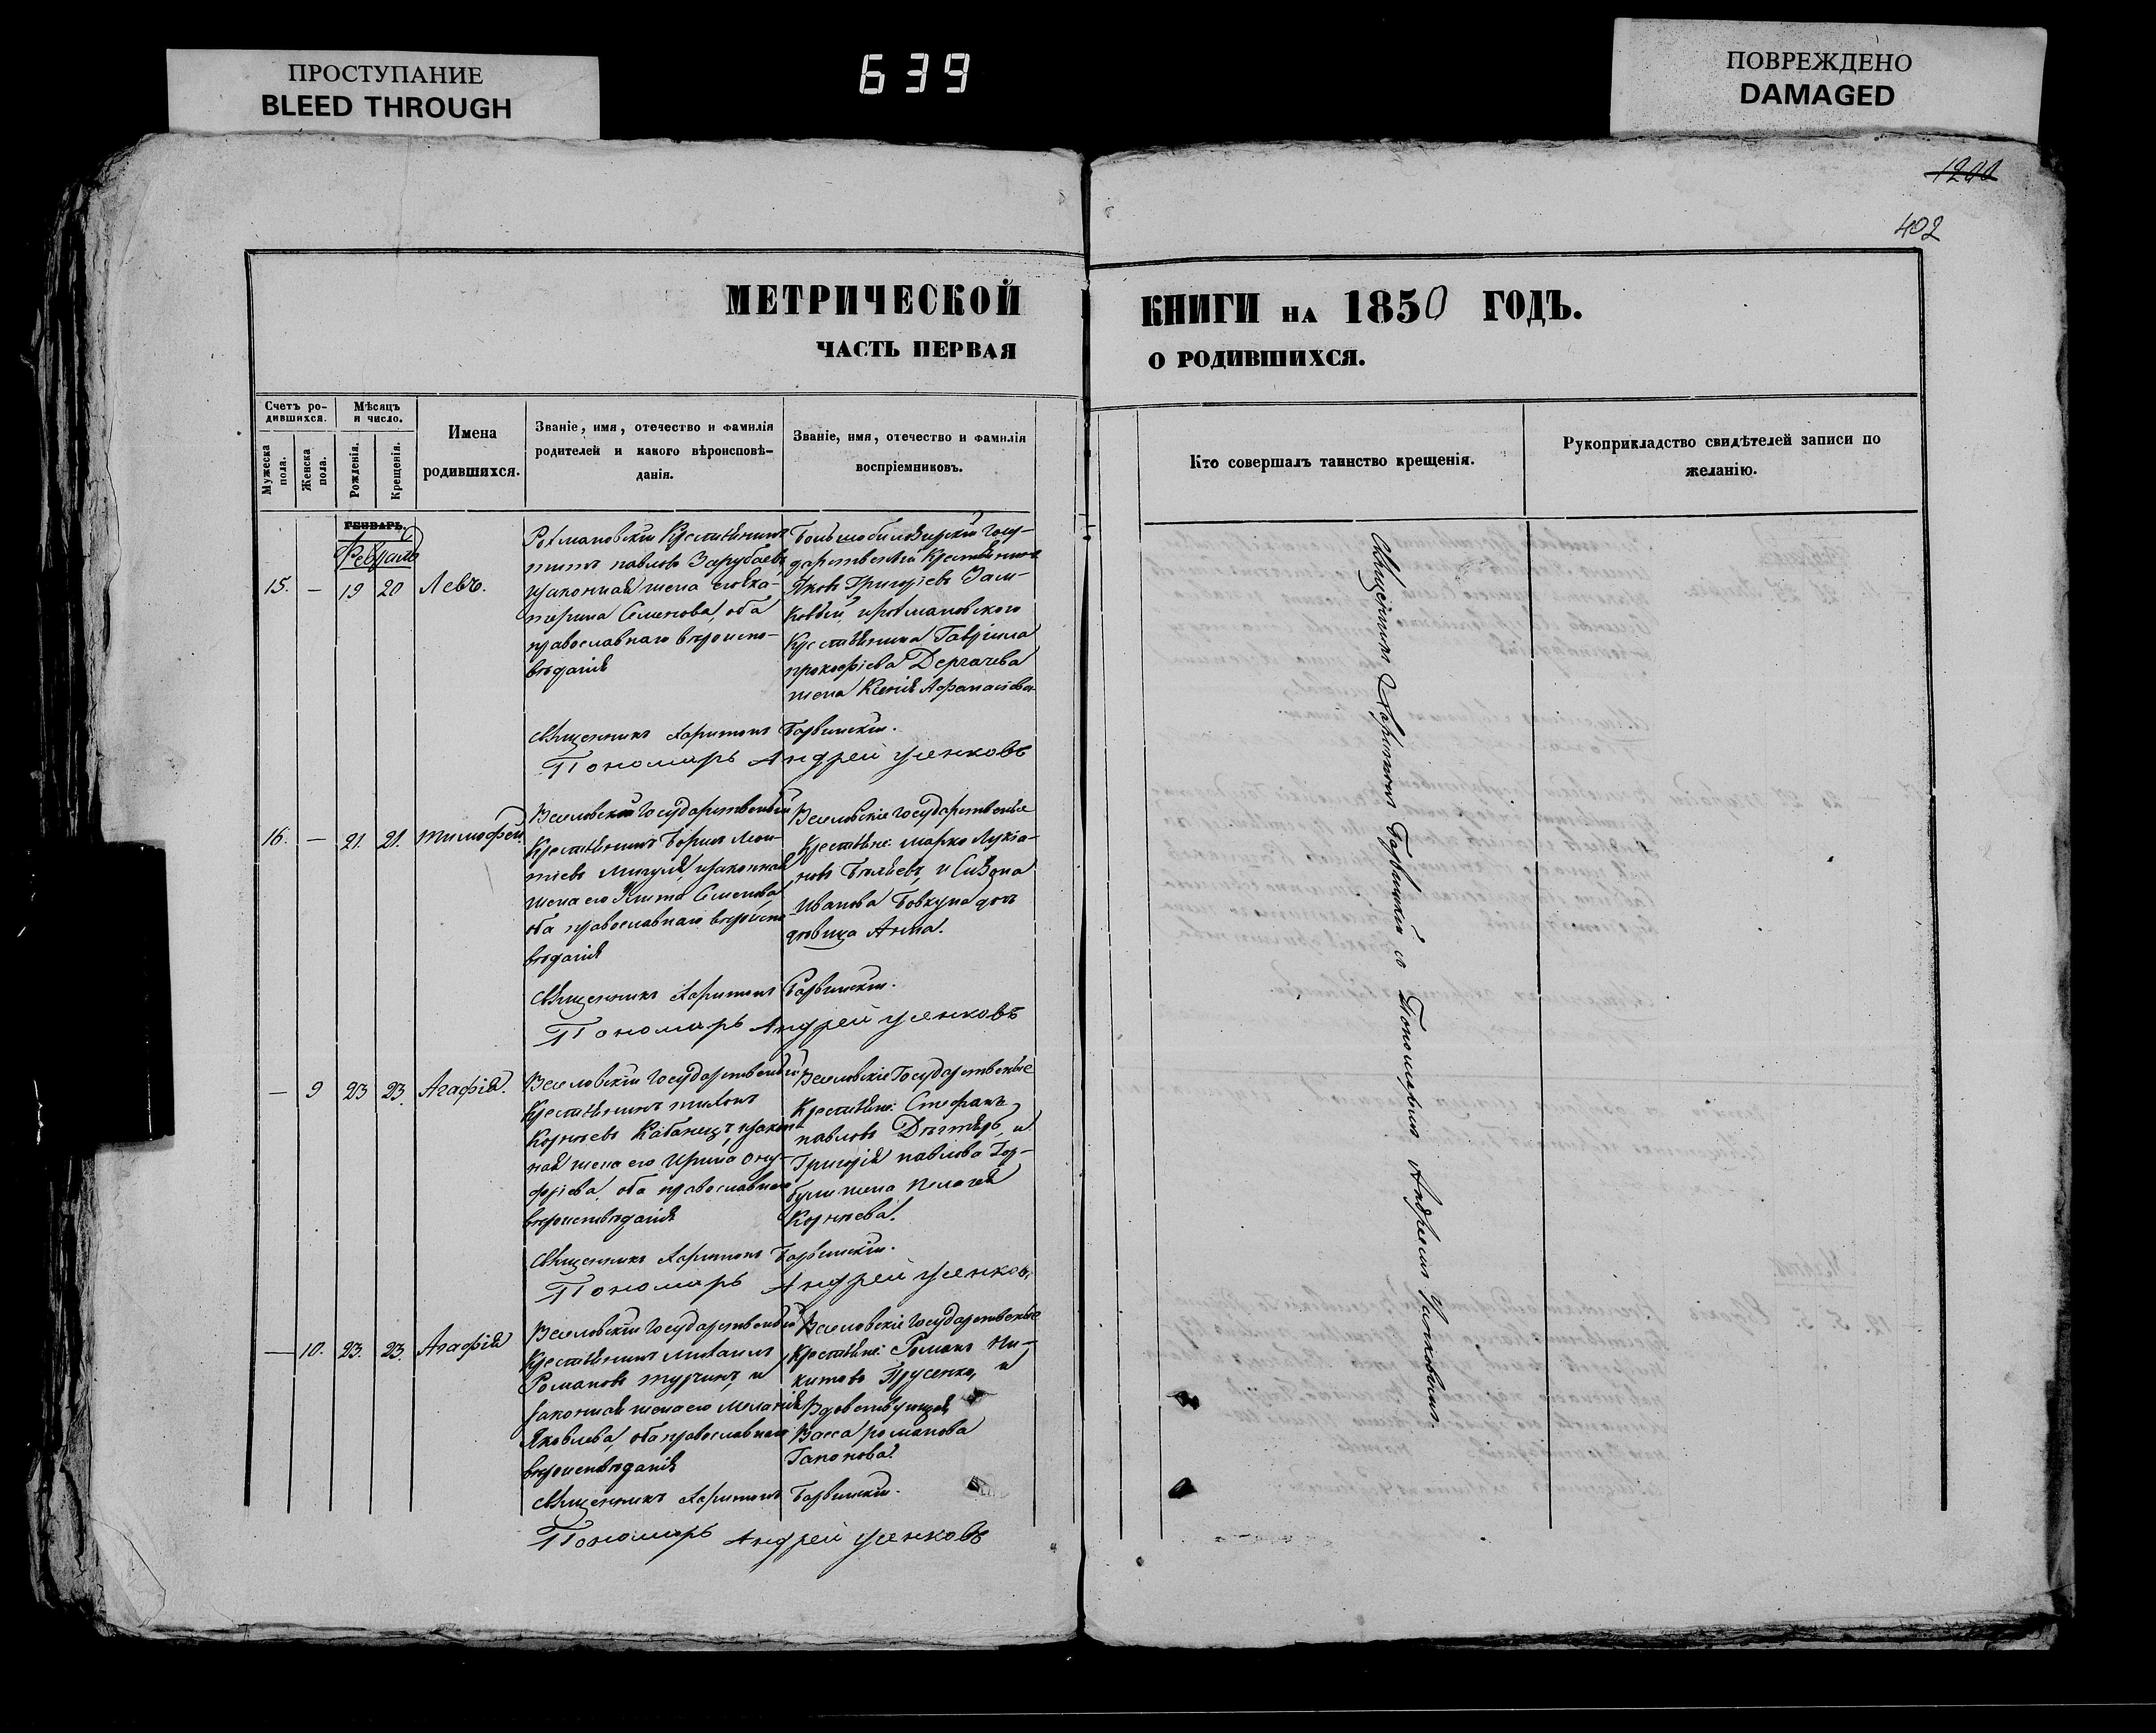 ПРОСТУПАНИЕ
BLEED THROUGH
639
ПОВРЕЖДЕНО
DAMAGED
1200
402
МЕТРИЧЕСКОЙ КНИГИ НА 1850 ГОДЪ.
ЧАСТЬ ПЕРВАЯ О РОДИВШИХСЯ.
Счетъ ро-
дившихся.
Мужеска
пола.
Женска
пола.
Мѣсяцъ
и число.
Рожденія.
Крещенія.
Имена
родившихся.
Званіе, имя, отечество и фамилія
родителей и какого вѣроисповѣ-
данія.
Званіе, имя, отечество и фамилія
воспріемниковъ.
Кто совершалъ таинство крещенія.
Рукоприкладство свидѣтелей записи по
желанію.
ГЕНВАРЬ.
Февраль
15. — 19 20 Левъ.
Крестьянинъ
павловъ Зарубаевъ
законная жена его Ека-
терина Семенова, оба
православнаго вѣроиспо-
вѣданія
Госу-
дарственный Крестьянинъ
Яковъ Григорьевъ
Крестьянина Гавріила
прокофіева Дергачева
жена Ксенія Афанасіева
Священникъ Харитонъ Барвинскій.
Пономарь Андрей Усенковъ
16. — 21. 21. тимофей.
Веселовскій Государственный
Крестьянинъ Борисъ
законная
жена его Семенова
оба православнаго вѣроиспо-
вѣданія
Веселовскіе Государственные
Крестьяне: марко Лукіа-
новъ Бѣляевъ, и
Иванова Бовкуна дочь
дѣвица Анна.
Священникъ Харитонъ Барвинскій.
Пономарь Андрей Усенковъ
— 9 23 23. Агафія.
Веселовскій Государственный
Крестьянинъ тихонъ
Корнѣевъ Кабанецъ, закон-
ная жена его Ирина Ону-
фріева оба православнаго
вѣроисповѣданія
Веселовскіе Государственные
Крестьяне: Стефанъ
павловъ Дѣгтярь, и
Григорія павлова Гор-
були жена Пелагея
Корнѣева.
Священникъ Харитонъ Барвинскій.
Пономарь Андрей Усенковъ
— 10. 23. 23. Агафія
Веселовскій Государственный
Крестьянинъ михаилъ
Романовъ турчинъ, и
законная жена его меланія
Яковлева, оба православнаго
вѣроисповѣданія
Веселовскіе Государственные
Крестьяне: Романъ Ни-
китовъ Прусенко, и
Вдовствующая
Васса романова
Гапонова.
Священникъ Харитонъ Барвинскій.
Пономарь Андрей Усенковъ
Священникъ Харитонъ Барвинскій съ Пономаремъ Андреемъ Усенковымъ.